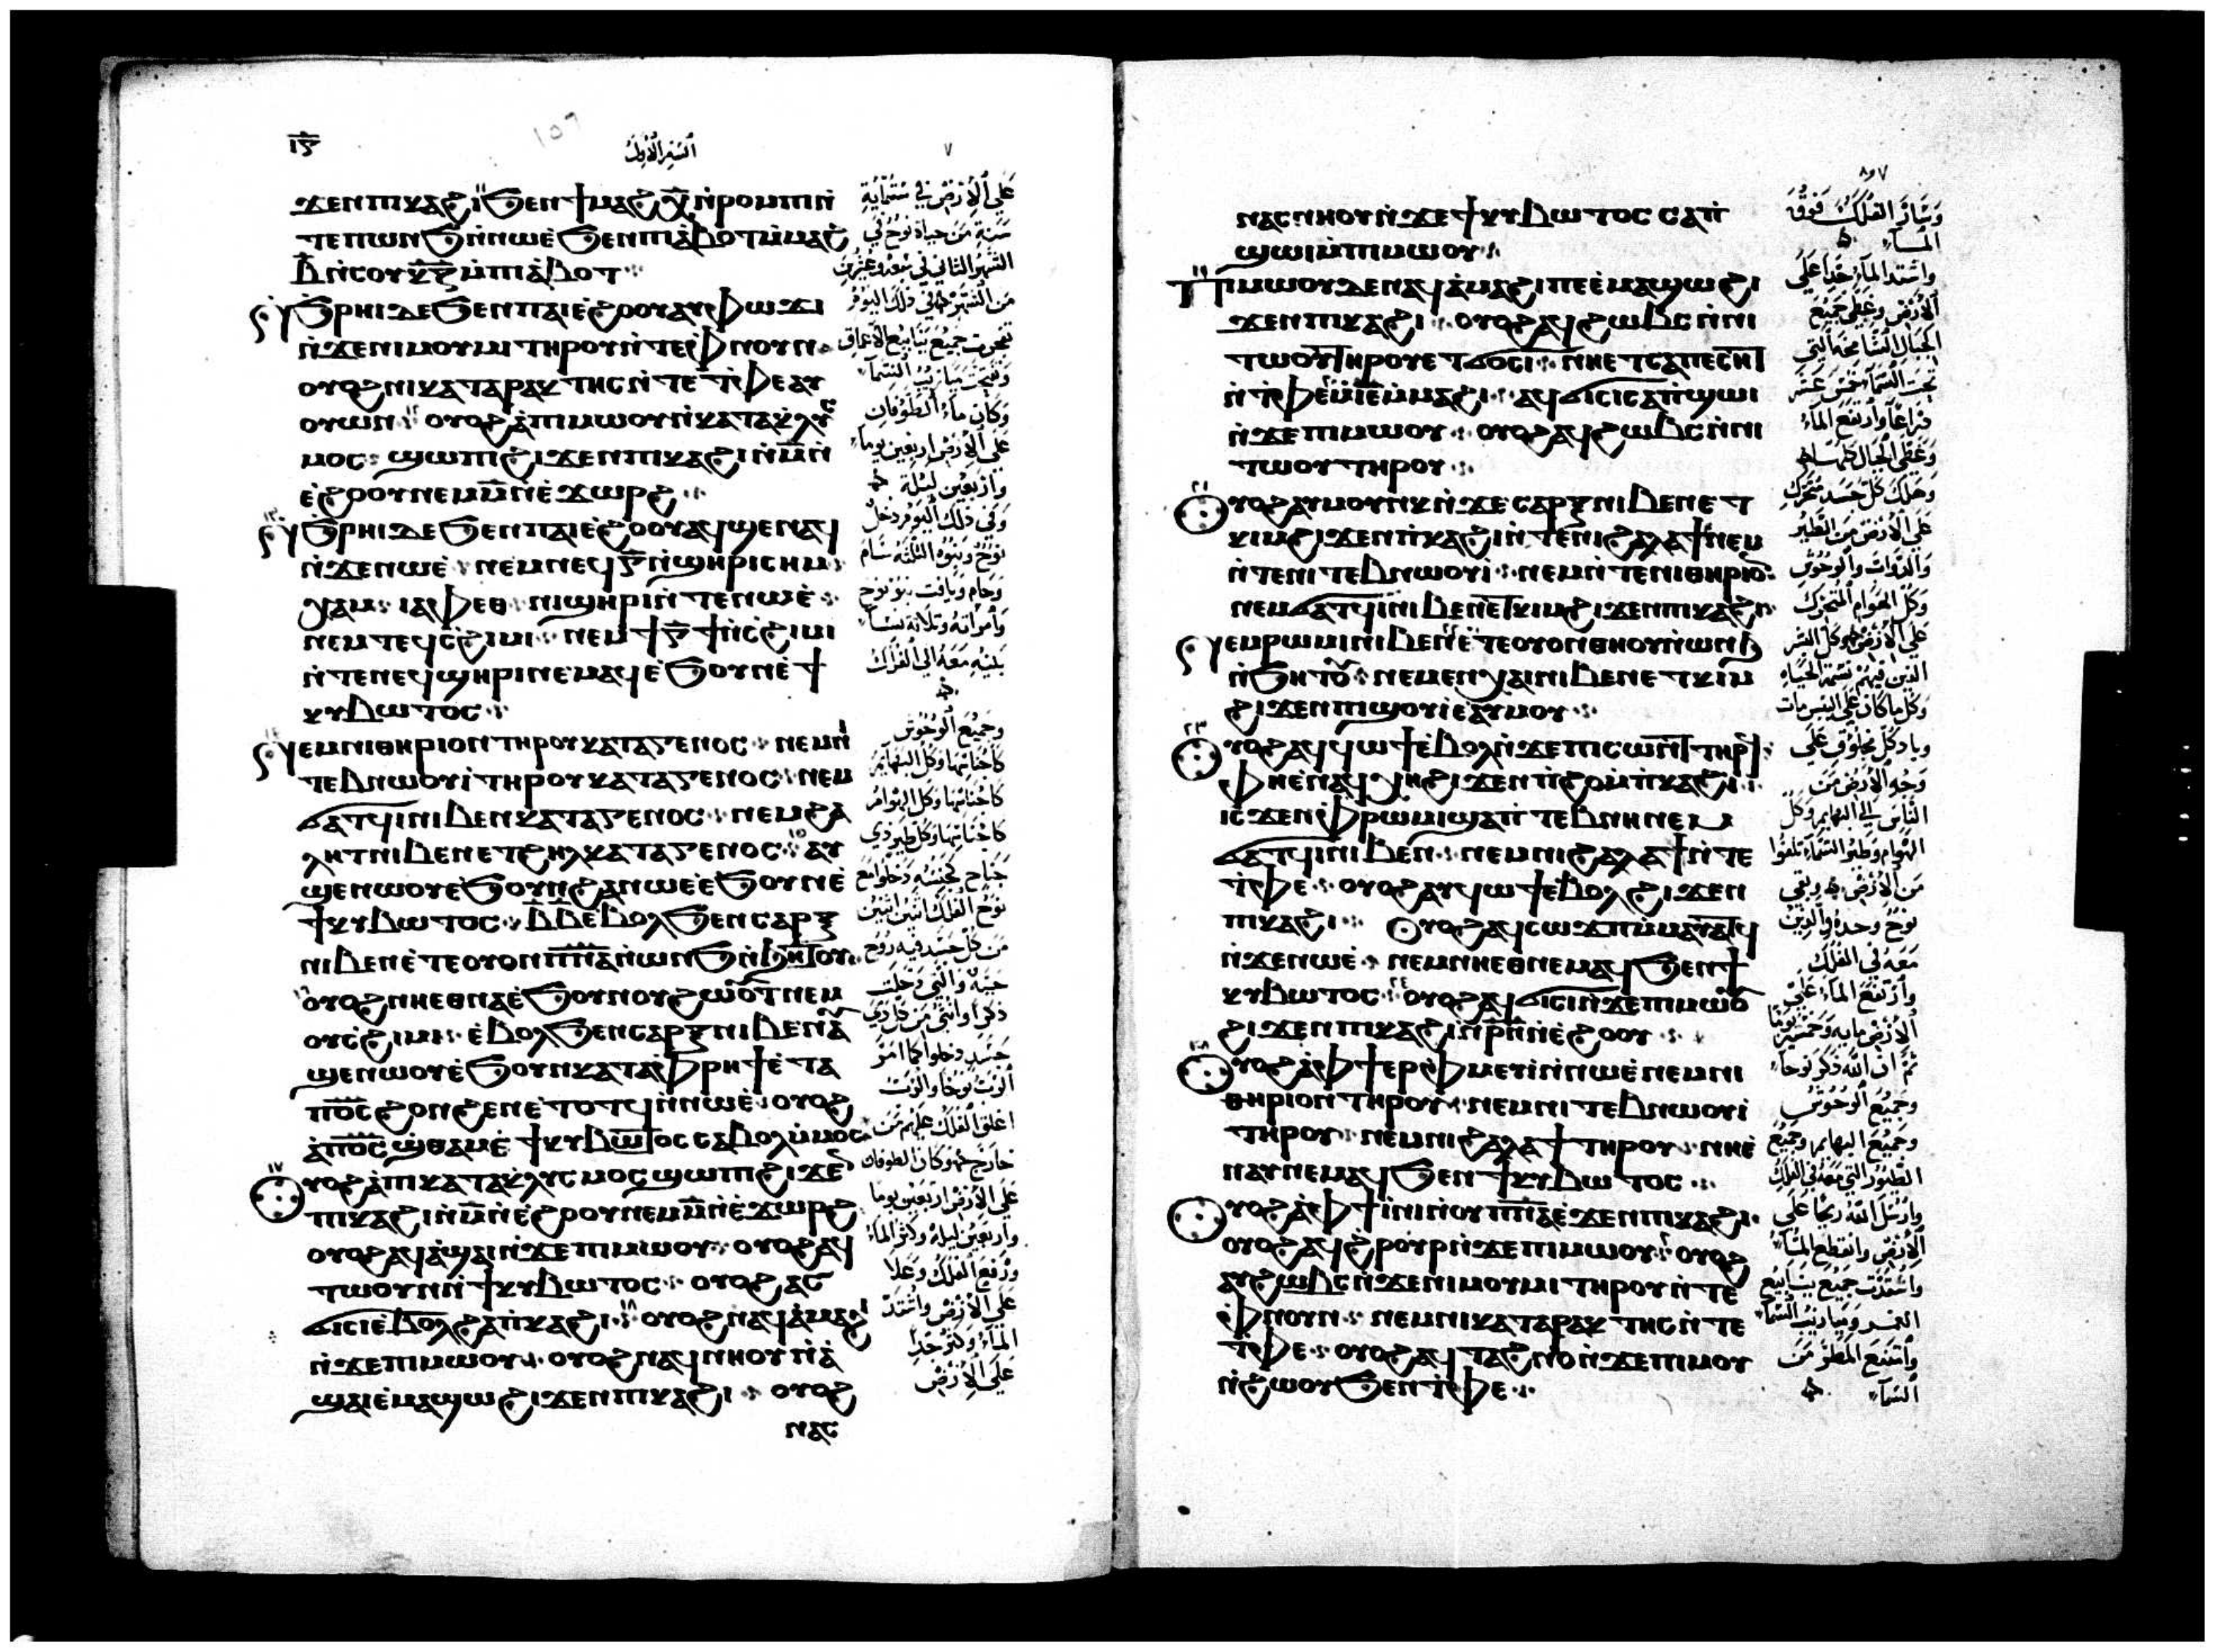 ⲓ̅ⲋ̅
السفر الاول
٧
ϫⲉⲛⲡⲓⲕⲁϩⲓ ϧⲉⲛϯⲙⲁϩ ⲭ̅ ⲛ̀ⲣⲟⲙⲡⲓ ⲛ̀
ⲧⲉⲡⲱⲛϧ ⲛ̀ⲛⲱⲉ̀ ϧⲉⲛⲡⲓⲁ̀ⲃⲟⲧ ⲙ̀ⲙⲁϩ
ⲃ̅ ⲛ̀ⲥⲟⲩ ⲕ̅ⲍ̅ ⲙ̀ⲡⲓⲁ̀ⲃⲟⲧ
ϧ̀ⲣⲏⲓ ⲇⲉ ϧⲉⲛⲡⲁⲓⲉ̀ϩⲟⲟⲩ ⲁⲩⲫⲱϫⲓ
ⲛ̀ϫⲉⲛⲓⲙⲟⲩⲙⲓ ⲧⲏⲣⲟⲩ ⲛ̀ⲧⲉⲫ̀ⲛⲟⲩⲛ
ⲟⲩⲟϩ ⲛⲓⲕⲁⲧⲁⲣⲁⲕⲧⲏⲥ ⲛ̀ⲧⲉ ⲧ̀ⲫⲉ ⲁⲩ
ⲟⲩⲱⲛ ⲟⲩⲟϩ ⲁ̀ⲡⲓⲙⲱⲟⲩ ⲛ̀ⲕⲁⲧⲁⲕⲗⲩⲥ
ⲙⲟⲥ ϣⲱⲡⲓ ϩⲓϫⲉⲛⲡⲓⲕⲁϩⲓ ⲙ̀ⲙ̅ ⲛ̀
ⲉ̀ϩⲟⲟⲩ ⲛⲉⲙ ⲙ̅ ⲛ̀ⲉ̀ϫⲱⲣϩ
ϧ̀ⲣⲏⲓ ⲇⲉ ϧⲉⲛⲡⲁⲓⲉ̀ϩⲟⲟⲩ ⲁϥϣⲉⲛⲁϥ
ⲛ̀ϫⲉⲛⲱⲉ̀ ⲛⲉⲙⲛⲉϥ ⲅ̅ ⲛ̀ϣⲏⲣⲓ ⲥⲏⲙ
ⲭⲁⲙ ⲓⲁⲫⲉⲑ ⲛⲓϣⲏⲣⲓ ⲛ̀ⲧⲉⲛⲱⲉ̀
ⲛⲉⲙⲧⲉϥⲥ̀ϩⲓⲙⲓ ⲛⲉⲙϯ ⲅ̅ ϯ ⲛ̀ⲥ̀ϩⲓⲙⲓ
ⲛ̀ⲧⲉⲛⲉϥϣⲏⲣⲓ ⲛⲉⲙⲁϥ ⲉ̀ϧⲟⲩⲛ ⲉ̀ϯ
ⲕⲩⲃⲱⲧⲟⲥ
ⲛⲉⲙⲛⲓⲑⲏⲣⲓⲟⲛ ⲧⲏⲣⲟⲩ ⲕⲁⲧⲁⲅⲉⲛⲟⲥ ⲛⲉⲙⲛⲓ
ⲧⲉⲃⲛⲱⲟⲩⲓ̀ ⲧⲏⲣⲟⲩ ⲕⲁⲧⲁⲅⲉⲛⲟⲥ ⲛⲉⲙ
ϭⲁⲧϥⲓ ⲛⲓⲃⲉⲛ ⲕⲁⲧⲁⲅⲉⲛⲟⲥ ⲛⲉⲙϩⲁ
ⲗⲏⲧ ⲛⲓⲃⲉⲛ ⲉⲧϩⲏⲗ ⲕⲁⲧⲁⲅⲉⲛⲟⲥ ⲁⲩ
ϣⲉⲛⲱⲟⲩ ⲉ̀ϧⲟⲩⲛ ϩⲁⲛⲱⲉ ⲉ̀ϧⲟⲩⲛ ⲉ̀
ϯⲕⲩⲃⲱⲧⲟⲥ ⲃ̅ ⲃ̅ ⲉⲃⲟⲗϧⲉⲛ ⲥⲁⲣⲝ
ⲛⲓⲃⲉⲛ ⲉ̀ⲧⲉⲟⲩⲟⲛ ⲡ̅ⲛ̅ⲁ̅ ⲛ̀ⲱⲛϧ ⲛ̀ϧⲏⲧⲟⲩ
ⲟⲩⲟϩ ⲛⲏⲉⲑⲛⲁ ⲉ̀ϧⲟⲩⲛ ⲟⲩϩⲱⲟⲩⲧ ⲛⲉⲙ
ⲟⲩⲥ̀ϩⲓⲙⲓ ⲉ̀ⲃⲟⲗϧⲉⲛ ⲥⲁⲣⲝ ⲛⲓⲃⲉⲛ ⲁⲩ
ϣⲉⲛⲱⲟⲩ ⲉ̀ϧⲟⲩⲛ ⲕⲁⲧⲁⲫ̀ⲣⲏϯ ⲉ̀ⲧⲁ
ⲡⲟ̅ⲥ̅ ϩⲟⲛϩⲉⲛ ⲉ̀ⲧⲟⲧϥ ⲛ̀ⲛⲱⲉ̀ ⲟⲩⲟϩ
ⲁ̀ⲡⲟ̅ⲥ̅ ϣ̀ⲑⲁⲙ ⲉ̀ϯⲕⲩⲃⲱⲧⲟⲥ ⲥⲁⲃⲟⲗ ⲙ̀ⲙⲟⲥ
ⲟⲩⲟϩ ⲁ̀ⲡⲓⲕⲁⲧⲁⲕⲗⲩⲥⲙⲟⲥ ϣⲱⲡⲓ ϩⲓϫⲉⲛ
ⲡⲓⲕⲁϩⲓ ⲙ̀ⲙ̅ ⲛ̀ⲉ̀ϩⲟⲟⲩ ⲛⲉⲙ ⲙ̅ ⲛ̀ⲉ̀ϫⲱⲣϩ
ⲟⲩⲟϩ ⲁϥⲁ̀ϣⲁⲓ ⲛ̀ϫⲉⲡⲓⲙⲱⲟⲩ ⲟⲩⲟϩ ⲁϥ
ⲧⲱⲟⲩⲛ ⲛ̀ϯⲕⲩⲃⲱⲧⲟⲥ ⲟⲩⲟϩ ⲁⲥ
ϭⲓⲥⲓ ⲉ̀ⲃⲟⲗϩⲁⲡ̀ⲕⲁϩⲓ ⲟⲩⲟϩ ⲛⲁϥⲁ̀ⲙⲁϩⲓ
ⲛ̀ϫⲉⲡⲓⲙⲱⲟⲩ ⲟⲩⲟϩ ⲛⲁϥⲛⲏⲟⲩ ⲛ̀ⲁ̀
ϣⲁⲓ ⲉ̀ⲙⲁϣⲱ ϩⲓϫⲉⲛⲡⲓⲕⲁϩⲓ ⲟⲩⲟϩ
ⲛⲁⲥ
على الارض في ستماية
سنة من حياة نوح في
الشهر الثاني في سبعة وعشرين
من الشهر في ذلك اليوم
تفجرت جميع ينابيع الاعماق
وفتحت ميازيب السما
وكان ماء الطوفان
على الارض اربعين يوما
واربعين ليلة
وفي ذلك اليوم دخل
نوح وبنوه الثلثة سام
وحام ويافت بنو نوح
وامراته وثلاثة نسا
بنيه معه الى الفلك
وجميع الوحوش
كاجناسها وكل البهايم
كاجناسها وكل الهوام
كاجناسها وكل طير ذي
جناح كجنسه دخلوا مع
نوح الفلك اثنين اثنين
من كل جسد فيه روح
حياة والتي دخلت
ذكرا وانثى من كل ذي
جسد دخلوا كما امر
الرب نوحا والرب
اغلق الفلك عليهم من
خارج وكان الطوفان
على الارض اربعين يوما
واربعين ليلة وكثر الماء
ورفع الفلك وعلا
على الارض واشتد
الماء وكثر جدا
على الارض
ⲛⲁⲥⲛⲏⲟⲩ ⲛ̀ϫⲉϯⲕⲩⲃⲱⲧⲟⲥ ⲥⲁⲡ̀
ϣⲱⲓ ⲙ̀ⲡⲓⲙⲱⲟⲩ
ⲡⲓⲙⲱⲟⲩ ⲇⲉ ⲛⲁϥⲁ̀ⲙⲁϩⲓ ⲡⲉ ⲉ̀ⲙⲁϣⲱ ϩⲓ
ϫⲉⲛⲡⲓⲕⲁϩⲓ ⲟⲩⲟϩ ⲁϥϩⲱⲃⲥ ⲛ̀ⲛⲓ
ⲧⲱⲟⲩ ⲧⲏⲣⲟⲩ ⲉⲧϭⲟⲥⲓ ⲛⲏⲉⲧⲥⲁⲡⲉⲥⲏⲧ
ⲛ̀ⲧ̀ⲫⲉ ⲓ̅ⲉ̅ ⲙ̀ⲙⲁϩⲓ ⲁϥϭⲓⲥⲓ ⲥⲁⲡ̀ϣⲱⲓ
ⲛ̀ϫⲉⲡⲓⲙⲱⲟⲩ ⲟⲩⲟϩ ⲁϥϩⲱⲃⲥ ⲛ̀ⲛⲓ
ⲧⲱⲟⲩ ⲧⲏⲣⲟⲩ
ⲟⲩⲟϩ ⲁⲩⲙⲟⲩⲛⲕ ⲛ̀ϫⲉⲥⲁⲣⲝ ⲛⲓⲃⲉⲛ ⲉⲧ
ⲕⲓⲙ ϩⲓϫⲉⲛⲡ̀ⲕⲁϩⲓ ⲛ̀ⲧⲉⲛⲓϩⲁⲗⲁϯ ⲛⲉⲙ
ⲛ̀ⲧⲉⲛⲓⲧⲉⲃⲛⲱⲟⲩⲓ̀ ⲛⲉⲙⲛ̀ⲧⲉⲛⲓⲑⲏⲣⲓⲟⲛ
ⲛⲉⲙϭⲁⲧϥⲓ ⲛⲓⲃⲉⲛ ⲉⲧⲕⲓⲙ ϩⲓϫⲉⲛⲡⲓⲕⲁϩⲓ
ⲛⲉⲙⲣⲱⲙⲓ ⲛⲓⲃⲉⲛ ⲉ̀ⲧⲉⲟⲩⲟⲛ ⲑⲛⲟⲩ ⲛ̀ⲱⲛϧ
ⲛ̀ϧⲏⲧⲟⲩ ⲛⲉⲙⲉⲛⲭⲁⲓ ⲛⲓⲃⲉⲛ ⲉⲧⲕⲓⲙ
ϩⲓϫⲉⲛⲡⲓϣⲟⲩⲓⲉ ⲁⲩⲙⲟⲩ
ⲟⲩⲟϩ ⲁϥϥⲱϯ ⲉ̀ⲃⲟⲗ ⲛ̀ϫⲉⲡⲓⲥⲱⲛⲧ ⲧⲏⲣϥ
ⲫⲏⲉ̀ⲛⲁϥⲭⲏ ϩⲓϫⲉⲛⲡ̀ϩⲟ ⲙ̀ⲡ̀ⲕⲁϩⲓ
ⲓⲥϫⲉⲛ ⲫ̀ⲣⲱⲙⲓ ϣⲁⲡ̀ⲧⲉⲃⲛⲏ ⲛⲉⲙ
ϭⲁⲧϥⲓ ⲛⲓⲃⲉⲛ ⲛⲉⲙⲛⲓϩⲁⲗⲁϯ ⲛ̀ⲧⲉ
ⲧ̀ⲫⲉ ⲟⲩⲟϩ ⲁⲩϥⲱϯ ⲉⲃⲟⲗ ϩⲓϫⲉⲛ
ⲡⲕⲁϩⲓ ⲟⲩⲟϩ ⲁϥⲥⲱϫⲡ ⲙ̀ⲙⲁⲩⲁⲧϥ
ⲛ̀ϫⲉⲛⲱⲉ̀ ⲛⲉⲙⲛⲏⲉⲑⲛⲉⲙⲁϥ ϧⲉⲛϯ
ⲕⲩⲃⲱⲧⲟⲥ ⲟⲩⲟϩ ⲁϥϭⲓⲥⲓ ⲛ̀ϫⲉⲡⲓⲙⲱⲟⲩ
ϩⲓϫⲉⲛⲡⲓⲕⲁϩⲓ ⲛ̀ⲣ̅ⲛ̅ ⲛ̀ⲉ̀ϩⲟⲟⲩ
ⲟⲩⲟϩ ⲁ̀ⲫϯ ⲉⲣⲫ̀ⲙⲉⲩⲓ̀ ⲛ̀ⲛⲱⲉ̀ ⲛⲉⲙⲛⲓ
ⲑⲏⲣⲓⲟⲛ ⲧⲏⲣⲟⲩ ⲛⲉⲙⲛⲓⲧⲉⲃⲛⲱⲟⲩⲓ̀
ⲧⲏⲣⲟⲩ ⲛⲉⲙⲛⲓϩⲁⲗⲁϯ ⲧⲏⲣⲟⲩ ⲛⲏⲉ̀
ⲛⲁⲩⲛⲉⲙⲁϥ ϧⲉⲛϯⲕⲩⲃⲱⲧⲟⲥ
ⲟⲩⲟϩ ⲁ̀ⲫϯ ⲓ̀ⲛⲓ ⲛ̀ⲟⲩⲡ̅ⲛ̅ⲁ̅ ⲉ̀ϫⲉⲛⲡⲓⲕⲁϩⲓ
ⲟⲩⲟϩ ⲁϥϩ̀ⲣⲟⲩⲣ ⲛ̀ϫⲉⲡⲓⲙⲱⲟⲩ ⲟⲩⲟϩ
ⲁⲩϩⲱⲃⲥ ⲛ̀ϫⲉⲛⲓⲙⲟⲩⲙⲓ ⲧⲏⲣⲟⲩ ⲛ̀ⲧⲉ
ⲫ̀ⲛⲟⲩⲛ ⲛⲉⲙⲛⲓⲕⲁⲧⲁⲣⲁⲕⲧⲏⲥ ⲛ̀ⲧⲉ
ⲧ̀ⲫⲉ ⲟⲩⲟϩ ⲁϥⲧⲁϩⲛⲟ ⲛ̀ϫⲉⲡⲓⲙⲟⲩ
ⲛ̀ϩⲱⲟⲩ ϧⲉⲛⲧ̀ⲫⲉ
وسار الفلك فوق
الماء
واشتد الماء جدا على
الارض وغطى جميع
الجبال الشامخة التي
تحت السماء خمس عشرة
ذراعا وارتفع الماء
وغطى الجبال كلها
وهلك كل جسد متحرك
على الارض من الطير
والدواب والوحوش
وكل الهوام المتحرك
على الارض وكل البشر
الذين فيهم نسمة الحياة
وكل ما كان على اليبس مات
وباد كل مخلوق على
وجه الارض من
الناس الى البهايم وكل
الهوام وطير السماء تلفوا
من الارض وبقي
نوح وحده والذين
معه في الفلك
وارتفع الماء على
الارض مايه وخمسين يوما
ثم ان الله ذكر نوحا
وجميع الوحوش
وجميع البهايم وجميع
الطيور التي معه في الفلك
وارسل الله ريحا على
الارض وانقطع الماء
واستدت جميع ينابيع
الغمر وميازيب السماء
وامتنع المطر من
السماء